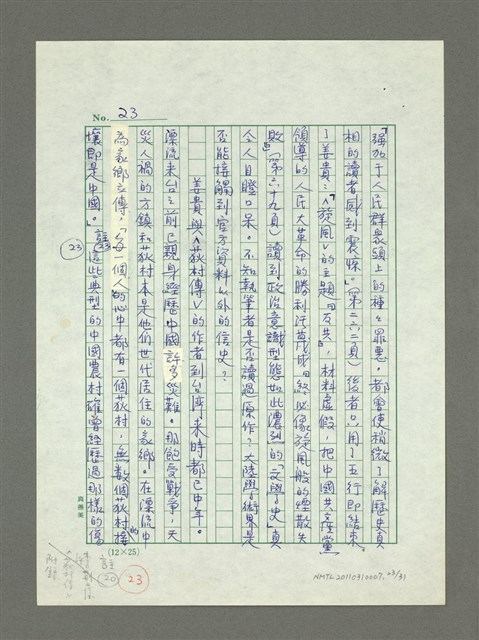 No. 23
「強加于人民群眾頭上的種々罪惡，都會使稍微了解歷史真
相的讀者感到震悚。」（第二六二頁）後者只用了五行即結束
了姜貴：「《旋風》的主題『反共』，材料虛假，把中國共產黨
領導的人民大革命的勝利污蔑成『終必像旋風般的煙散失
敗』」（第六十九頁）讀到政治意識型態如此濃烈的「文學史」，真
令人目瞪口呆。不知執筆者是否讀過原作？大陸學術界是
否能接觸到官方資料以外的信史？
姜貴與《荻村傳》的作者到台灣來時都已中年。
漂流來台之前已親身經歷中國許多災難。那飽受戰爭，天
災人禍的方鎮和荻村本是他們世代居住的家鄉。在漂流中
為家鄉立傳，「每一個人的心中都有一個荻村，無數個荻村接
壤即是中國。」註23這些典型的中國農村確曾經歷過那樣的傷
23
(12×25)
註
20
23
附錄
NMTL20110310007, 23/31